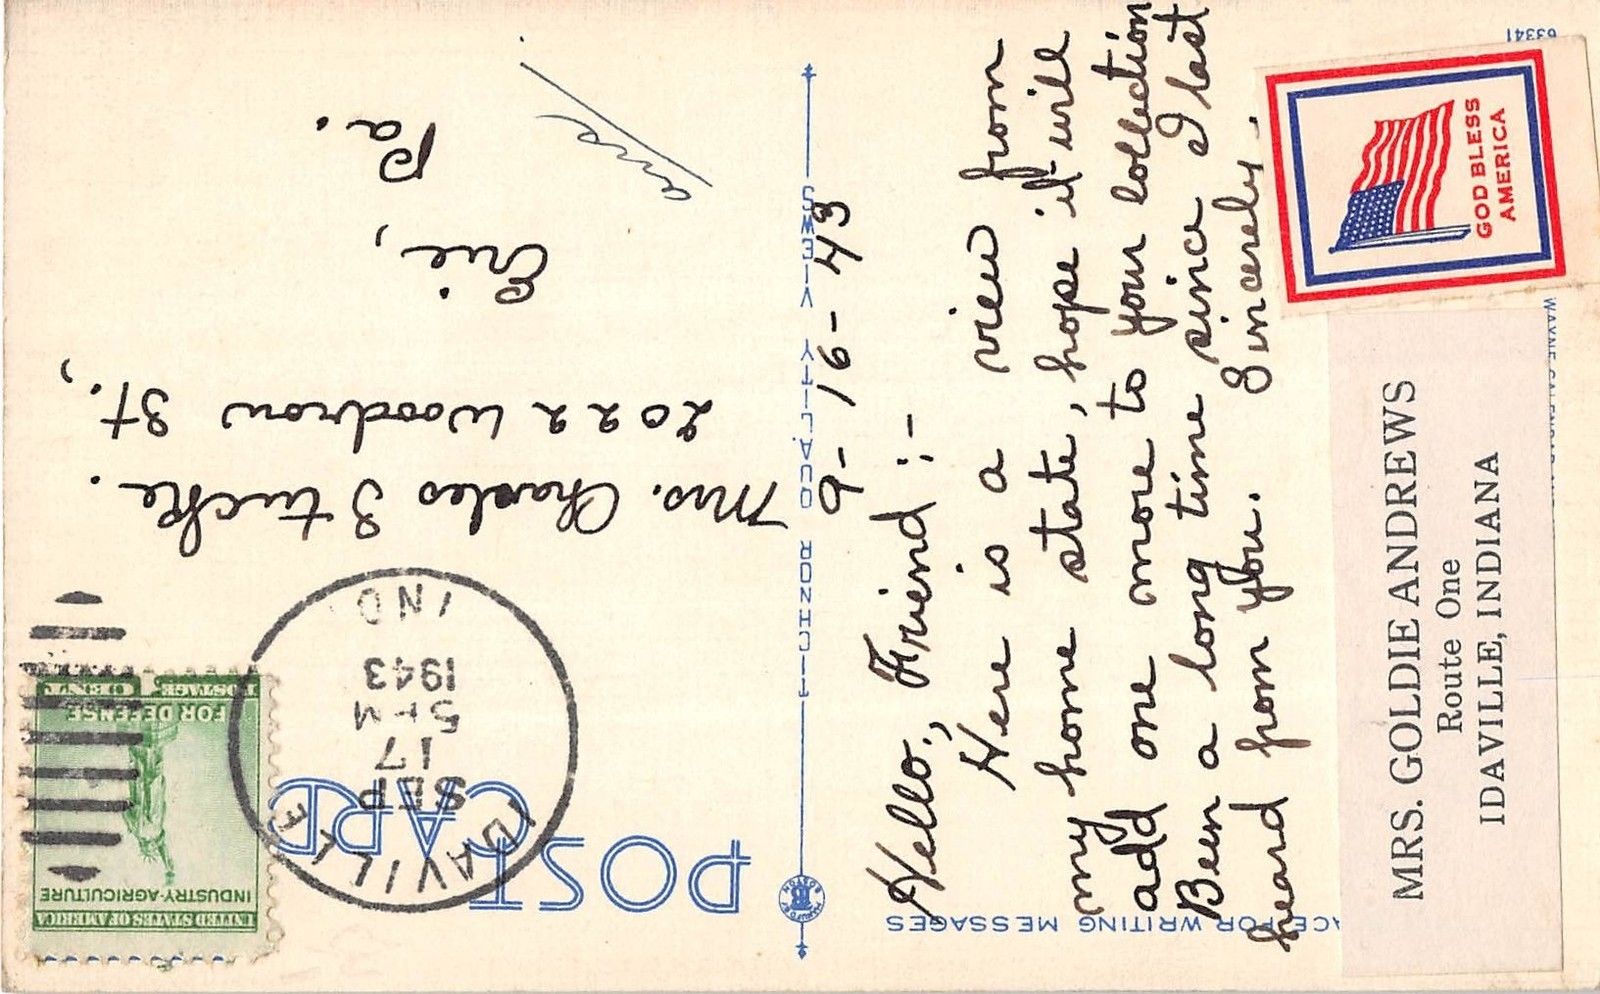 POST CARD
SPACE FOR WRITING MESSAGES
TICHNOR QUALITY VIEWS
BOSTON
63341
UNITED STATES OF AMERICA
INDUSTRY-AGRICULTURE
FOR DEFENSE
1 CENT
POSTAGE
IDAVILLE
SEP
17
5 PM
1943
IND
Mrs. Charles Stucke.
2022 Woodrow St.,
Erie,
Pa.
ans
9-16-43
Hello, Friend :-
Here is a view from
my home state, hope it will
add one more to your collection
Been a long time since I last
heard from you. Sincerely.
GOD BLESS
AMERICA
MRS. GOLDIE ANDREWS
Route One
IDAVILLE, INDIANA